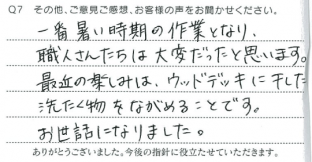 Q7 その他、ご意見ご感想、お客様の声をお聞かせください。
一番暑い時期の作業となり、
職人さんたちは大変だったと思います。
最近の楽しみは、ウッドデッキに干した
洗たく物をながめることです。
お世話になりました。
ありがとうございました。今後の指針に役立たせていただきます。